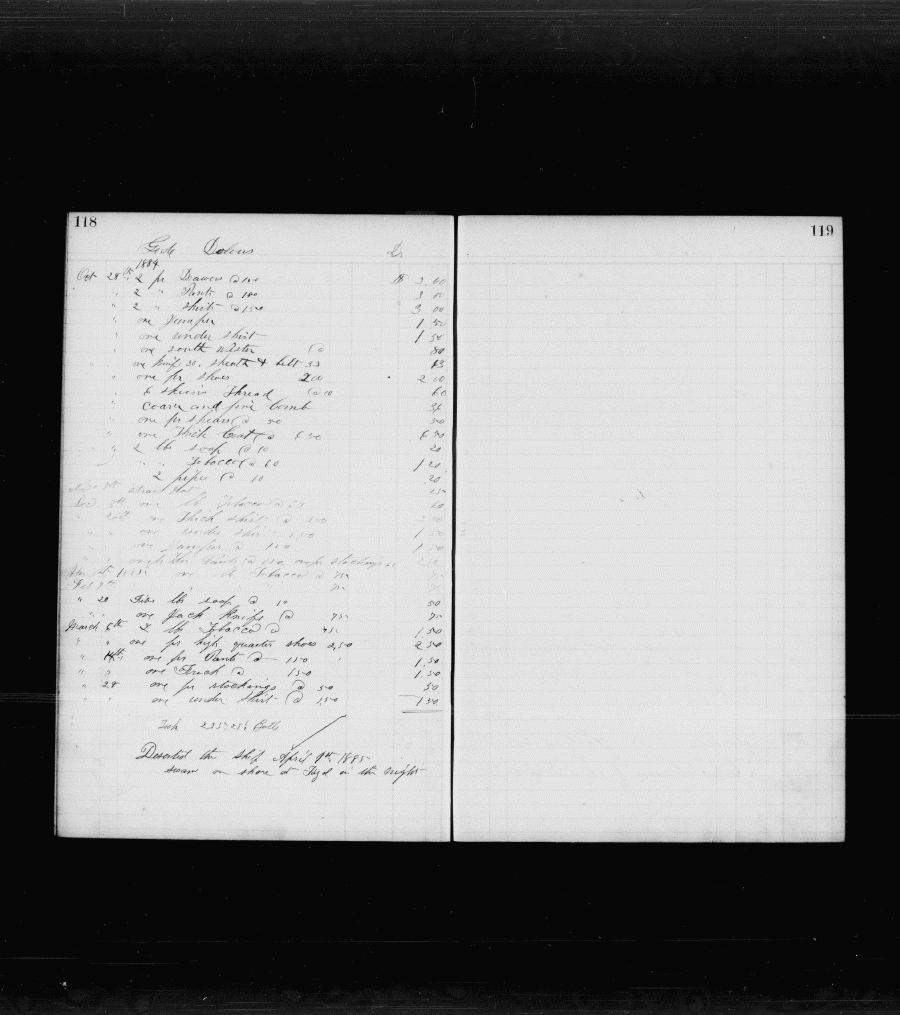 118
Dr
1884
Oct 28th 2 pr Drawers @ 150 $ 3.00
" 2 " Pants @ 150 3 00
" 2 " Shirts @ 150 3 00
" one Jumper 1 50
" one under shirt 1 50
" one south wester @ 80
" " one knife 30, sheath & belt 33 63
" one pr shoes 2 00 2 00
" 6 skeins Thread @ 10 60
" coarse and fine comb
" one pr shears @ 50 50
" one Thick Coat @ 6 50 6 50
" " 2 lb soap @ 10 20
" " Tobacco @ 60 1 20
2 pipes @ 10 20
straw hat 25
one lb Tobacco @ 60
" one Thick shirt @
" one under shirt 1 50 1 50
" one Jumper @ 150 1 50
Pants @ stockings
1885 one lb Tobacco @ 75
Feb
" 20 Five lb soap @ 10 50
" " one Jack Knife @ 75 75
March 6th 2 lb Tobacco @ 75 1.50
" " one pr high quarter shoes 2,50 2 50
" 14th one pr Pants @ 150 1.50
" " one Frock @ 150 1.50
" 28 one pr stockings @ 50 50
" " one under shirt @ 1,50 1 50
Deserted the ship April 9th 1885
swam on shore at in the night
119